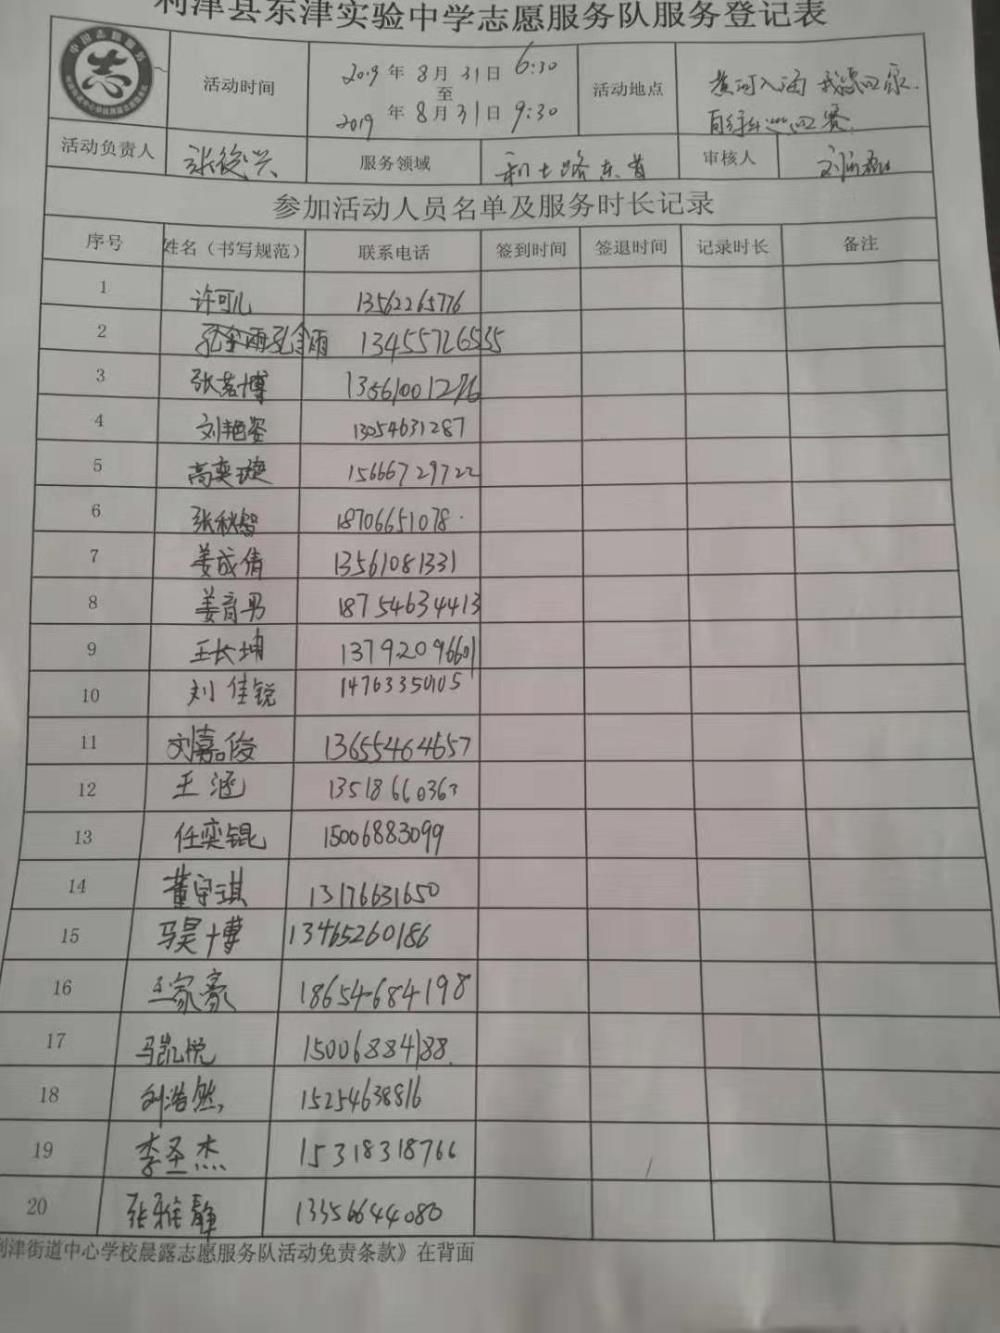 利津县东津实验中学志愿服务队服务登记表
活动时间 2019年8月31日 6:30 至 2019年8月31日 9:30 活动地点 黄河入海
自行车巡回赛
活动负责人 服务领域 利七路东首 审核人
参加活动人员名单及服务时长记录
序号 姓名（书写规范） 联系电话 签到时间 签退时间 记录时长 备注
1 许可儿 13562265776
2 孔金雨孔金雨 13455726535
3 张茗博 13561001276
4 刘艳姿 13054631287
5 高奕璇 15666729722
6 张秋智 18706651078
7 姜成倩 13561081331
8 姜育男 18754634413
9 王长坤 13792096601
10 刘佳锐 14763350105
11 刘嘉俊 13655464657
12 王涵 13518660363
13 任奕锟 15006883099
14 董守琪 13176631650
15 马昊博 13465260186
16 王家豪 18654684198
17 马凯悦 15006884188
18 刘浩然 15254638816
19 李圣杰 15318318766
20 张雅静 13356644080
利津街道中心学校晨露志愿服务队活动免责条款》在背面